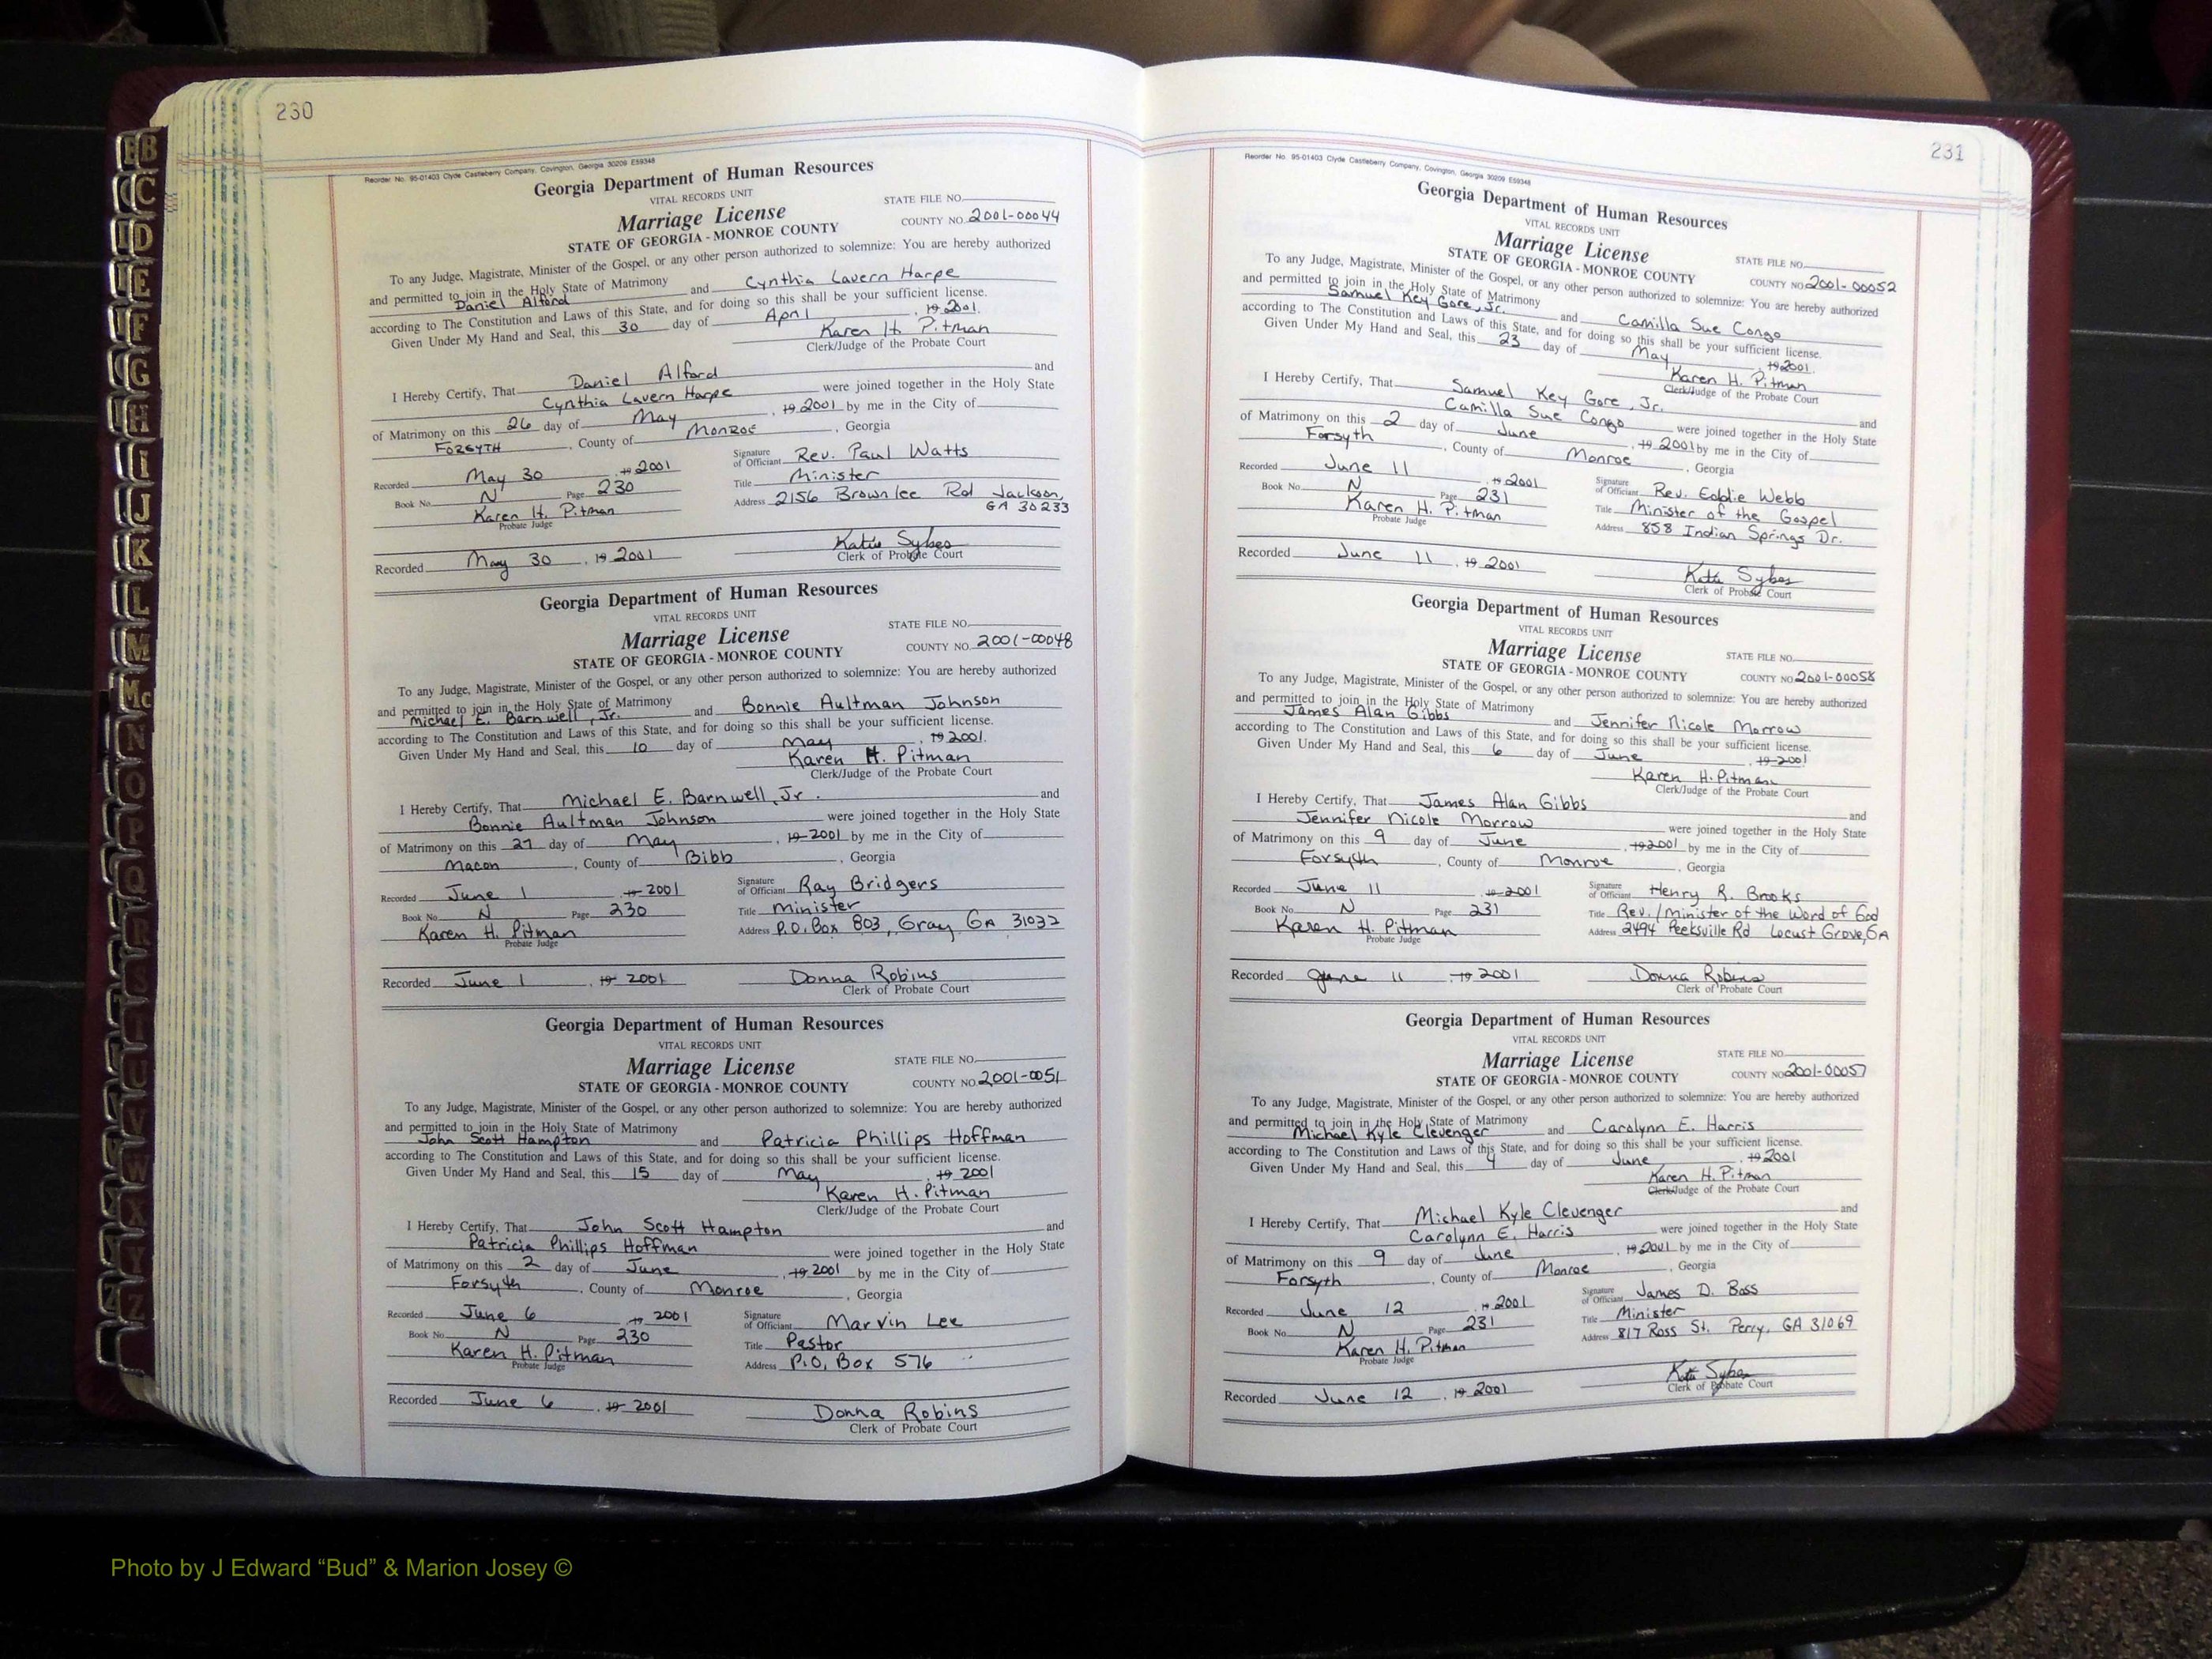 230
Reorder No. 95-01403 Clyde Castleberry Company, Covington, Georgia 30209 E59348
Georgia Department of Human Resources
VITAL RECORDS UNIT
STATE FILE NO.
Marriage License
COUNTY NO. 2001-00044
STATE OF GEORGIA - MONROE COUNTY
To any Judge, Magistrate, Minister of the Gospel, or any other person authorized to solemnize: You are hereby authorized
and permitted to join in the Holy State of Matrimony
Daniel Alford and Cynthia Lavern Harpe
according to The Constitution and Laws of this State, and for doing so this shall be your sufficient license.
Given Under My Hand and Seal, this 30 day of April, 19 2001.
Karen H. Pitman
Clerk/Judge of the Probate Court
I Hereby Certify, That Daniel Alford and
Cynthia Lavern Harpe were joined together in the Holy State
of Matrimony on this 26 day of May, 19 2001 by me in the City of
Forsyth, County of Monroe, Georgia
Recorded May 30, 19 2001
Signature of Officiant Rev. Paul Watts
Book No. N Page 230
Title Minister
Karen H. Pitman
Probate Judge
Address 2156 Brownlee Rd Jackson, GA 30233
Recorded May 30, 19 2001
Katie Sykes
Clerk of Probate Court
Georgia Department of Human Resources
VITAL RECORDS UNIT
STATE FILE NO.
Marriage License
COUNTY NO. 2001-00048
STATE OF GEORGIA - MONROE COUNTY
To any Judge, Magistrate, Minister of the Gospel, or any other person authorized to solemnize: You are hereby authorized
and permitted to join in the Holy State of Matrimony
Michael E. Barnwell, Jr. and Bonnie Aultman Johnson
according to The Constitution and Laws of this State, and for doing so this shall be your sufficient license.
Given Under My Hand and Seal, this 10 day of May, 19 2001.
Karen H. Pitman
Clerk/Judge of the Probate Court
I Hereby Certify, That Michael E. Barnwell, Jr. and
Bonnie Aultman Johnson were joined together in the Holy State
of Matrimony on this 27 day of May, 19 2001 by me in the City of
Macon, County of Bibb, Georgia
Recorded June 1, 19 2001
Signature of Officiant Ray Bridgers
Book No. N Page 230
Title Minister
Karen H. Pitman
Probate Judge
Address P.O. Box 803, Gray, GA 31032
Recorded June 1, 19 2001
Donna Robins
Clerk of Probate Court
Georgia Department of Human Resources
VITAL RECORDS UNIT
STATE FILE NO.
Marriage License
COUNTY NO. 2001-0051
STATE OF GEORGIA - MONROE COUNTY
To any Judge, Magistrate, Minister of the Gospel, or any other person authorized to solemnize: You are hereby authorized
and permitted to join in the Holy State of Matrimony
John Scott Hampton and Patricia Phillips Hoffman
according to The Constitution and Laws of this State, and for doing so this shall be your sufficient license.
Given Under My Hand and Seal, this 15 day of May, 19 2001
Karen H. Pitman
Clerk/Judge of the Probate Court
I Hereby Certify, That John Scott Hampton and
Patricia Phillips Hoffman were joined together in the Holy State
of Matrimony on this 2 day of June, 19 2001 by me in the City of
Forsyth, County of Monroe, Georgia
Recorded June 6, 19 2001
Signature of Officiant Marvin Lee
Book No. N Page 230
Title Pastor
Karen H. Pitman
Probate Judge
Address P.O. Box 576
Recorded June 6, 19 2001
Donna Robins
Clerk of Probate Court
231
Reorder No. 95-01403 Clyde Castleberry Company, Covington, Georgia 30209 E59348
Georgia Department of Human Resources
VITAL RECORDS UNIT
Marriage License
STATE FILE NO.
STATE OF GEORGIA - MONROE COUNTY
COUNTY NO. 2001-00052
To any Judge, Magistrate, Minister of the Gospel, or any other person authorized to solemnize: You are hereby authorized
and permitted to join in the Holy State of Matrimony
Samuel Key Gore, Jr. and Camilla Sue Congo
according to The Constitution and Laws of this State, and for doing so this shall be your sufficient license.
Given Under My Hand and Seal, this 23 day of May, 19 2001.
Karen H. Pitman
Clerk/Judge of the Probate Court
I Hereby Certify, That Samuel Key Gore, Jr. and
Camilla Sue Congo were joined together in the Holy State
of Matrimony on this 2 day of June, 19 2001 by me in the City of
Forsyth, County of Monroe, Georgia
Recorded June 11, 19 2001
Signature of Officiant Rev. Eddie Webb
Book No. N Page 231
Title Minister of the Gospel
Karen H. Pitman
Probate Judge
Address 858 Indian Springs Dr.
Recorded June 11, 19 2001
Katie Sykes
Clerk of Probate Court
Georgia Department of Human Resources
VITAL RECORDS UNIT
Marriage License
STATE FILE NO.
STATE OF GEORGIA - MONROE COUNTY
COUNTY NO. 2001-00058
To any Judge, Magistrate, Minister of the Gospel, or any other person authorized to solemnize: You are hereby authorized
and permitted to join in the Holy State of Matrimony
James Alan Gibbs and Jennifer Nicole Morrow
according to The Constitution and Laws of this State, and for doing so this shall be your sufficient license.
Given Under My Hand and Seal, this 6 day of June, 19 2001
Karen H. Pitman
Clerk/Judge of the Probate Court
I Hereby Certify, That James Alan Gibbs and
Jennifer Nicole Morrow were joined together in the Holy State
of Matrimony on this 9 day of June, 19 2001 by me in the City of
Forsyth, County of Monroe, Georgia
Recorded June 11, 19 2001
Signature of Officiant Henry R. Brooks
Book No. N Page 231
Title Rev./Minister of the Word of God
Karen H. Pitman
Probate Judge
Address 2494 Peeksville Rd Locust Grove, GA
Recorded June 11, 19 2001
Donna Robins
Clerk of Probate Court
Georgia Department of Human Resources
VITAL RECORDS UNIT
Marriage License
STATE FILE NO.
STATE OF GEORGIA - MONROE COUNTY
COUNTY NO. 2001-00057
To any Judge, Magistrate, Minister of the Gospel, or any other person authorized to solemnize: You are hereby authorized
and permitted to join in the Holy State of Matrimony
Michael Kyle Clevenger and Carolynn E. Harris
according to The Constitution and Laws of this State, and for doing so this shall be your sufficient license.
Given Under My Hand and Seal, this 4 day of June, 19 2001
Karen H. Pitman
Clerk/Judge of the Probate Court
I Hereby Certify, That Michael Kyle Clevenger and
Carolynn E. Harris were joined together in the Holy State
of Matrimony on this 9 day of June, 19 2001 by me in the City of
Forsyth, County of Monroe, Georgia
Recorded June 12, 19 2001
Signature of Officiant James D. Bass
Book No. N Page 231
Title Minister
Karen H. Pitman
Probate Judge
Address 817 Ross St. Perry, GA 31069
Recorded June 12, 19 2001
Katie Sykes
Clerk of Probate Court
B
C
D
E
F
G
H
I
J
K
L
M
Mc
N
O
P
Q
R
S
T
U
V
W
X
Y
Z
Photo by J Edward “Bud” & Marion Josey ©